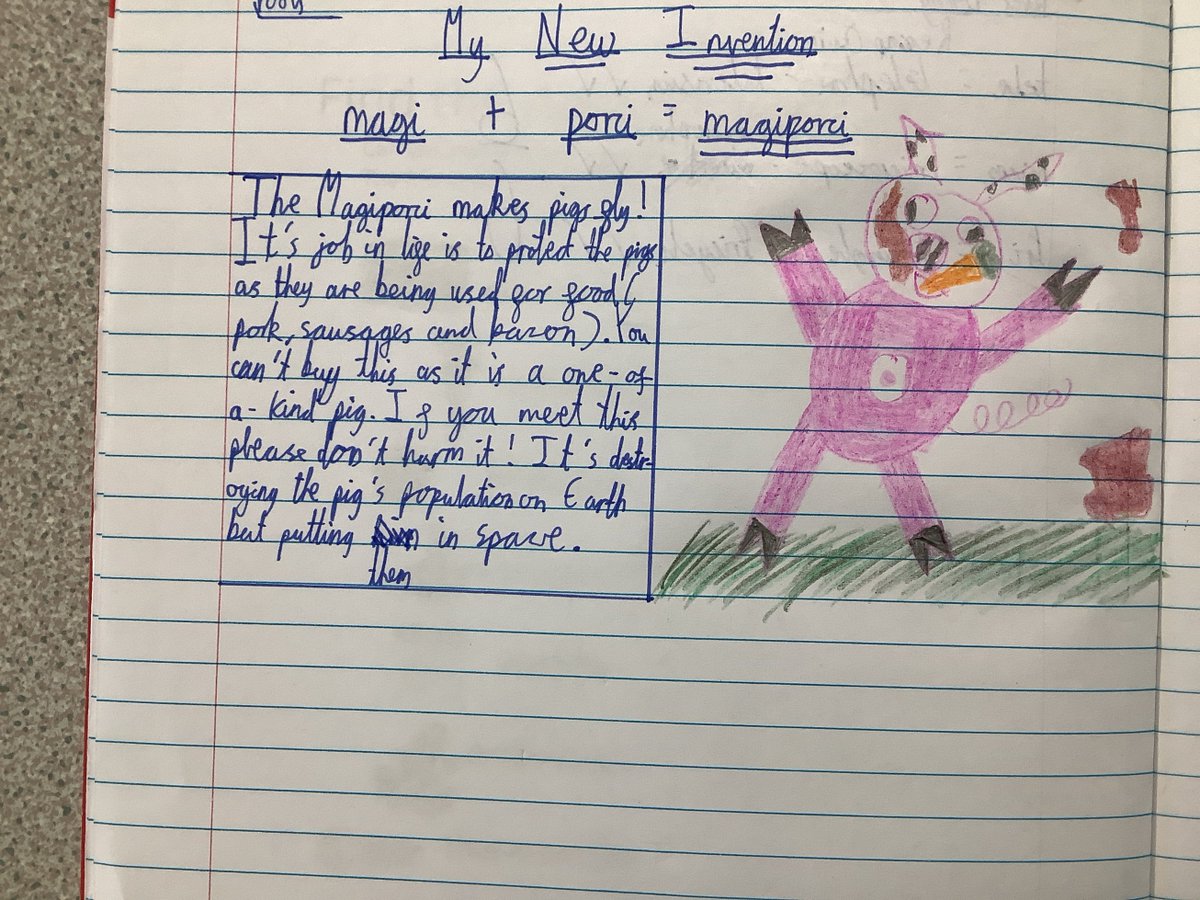 My New Invention
magi + porci = magiporci
The Magiporci makes pigs fly!
It's job in life is to protect the pigs
as they are being used for food (
pork, sausages and bacon). You
can't buy this as it is a one-of-
a-kind pig. If you meet this
please don't harm it! It's destr-
oying the pig's population on Earth
but putting in space.
them